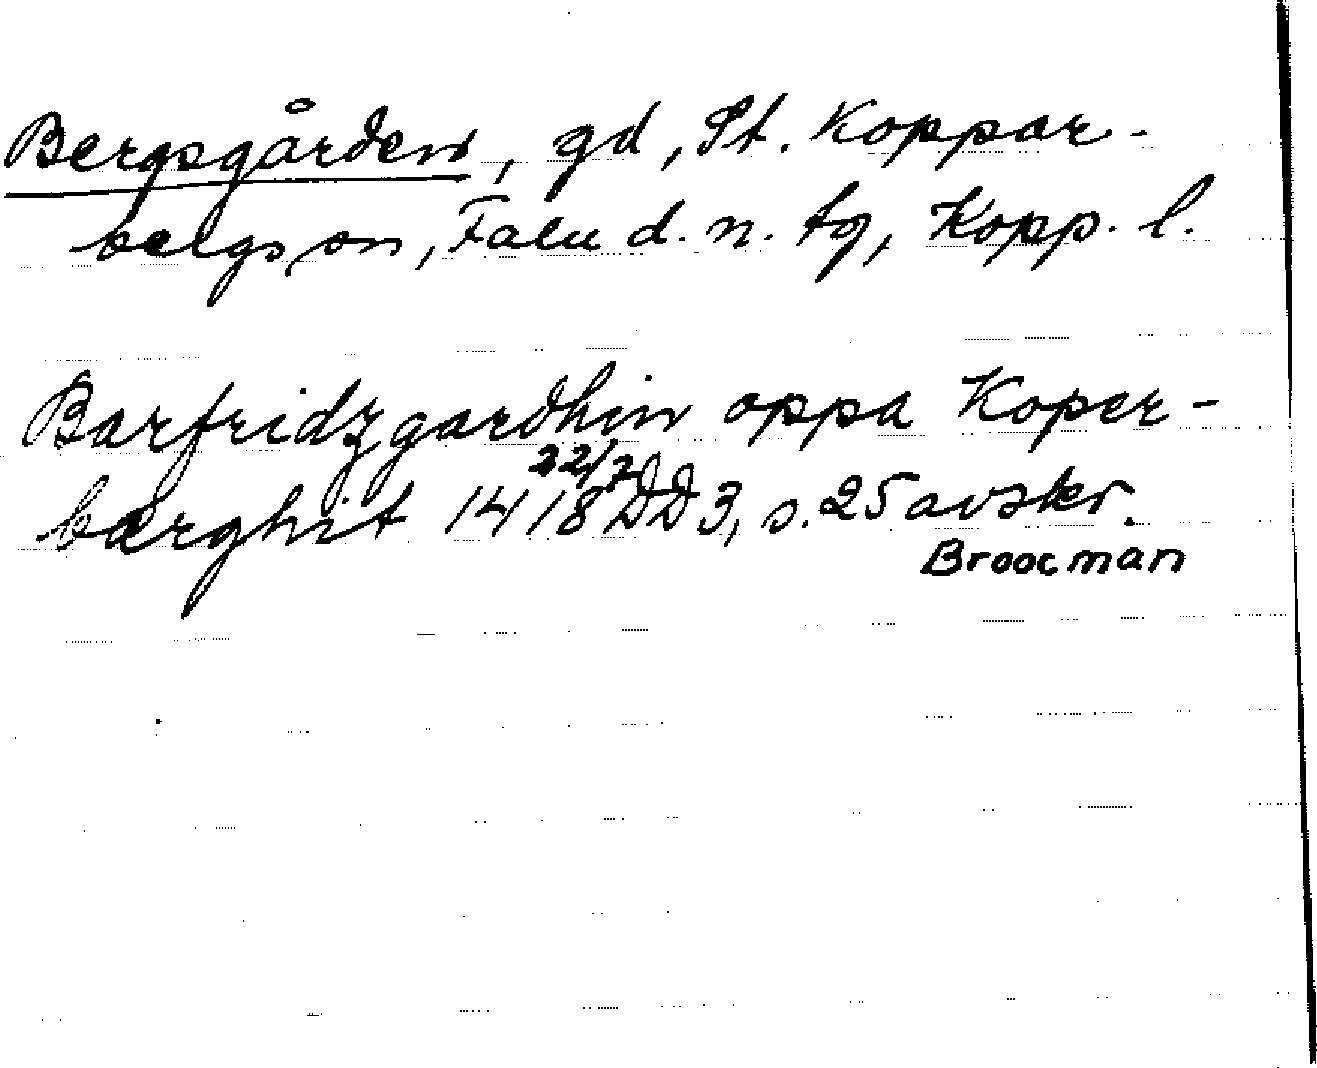 Bergsgården, gd, St. Koppar-
bergs sn, Falu d. n. tg, Kopp. l.
Barfridzgardhin oppa Koper-
bærghit 1418 22/7 DD 3, s. 25 avskr.
Broocman